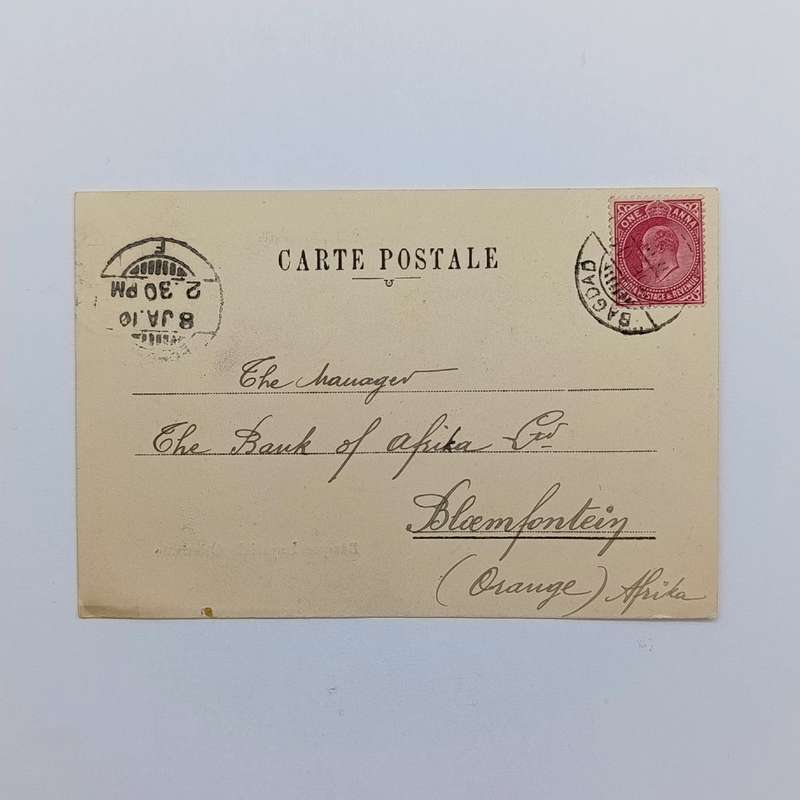 CARTE POSTALE
ONE ANNA
INDIA POSTAGE & REVENUE
BAGDAD
F
2.30 PM
8 JA.10
The Manager
The Bank of Afrika Ltd
Bloemfontein
(Orange) Afrika